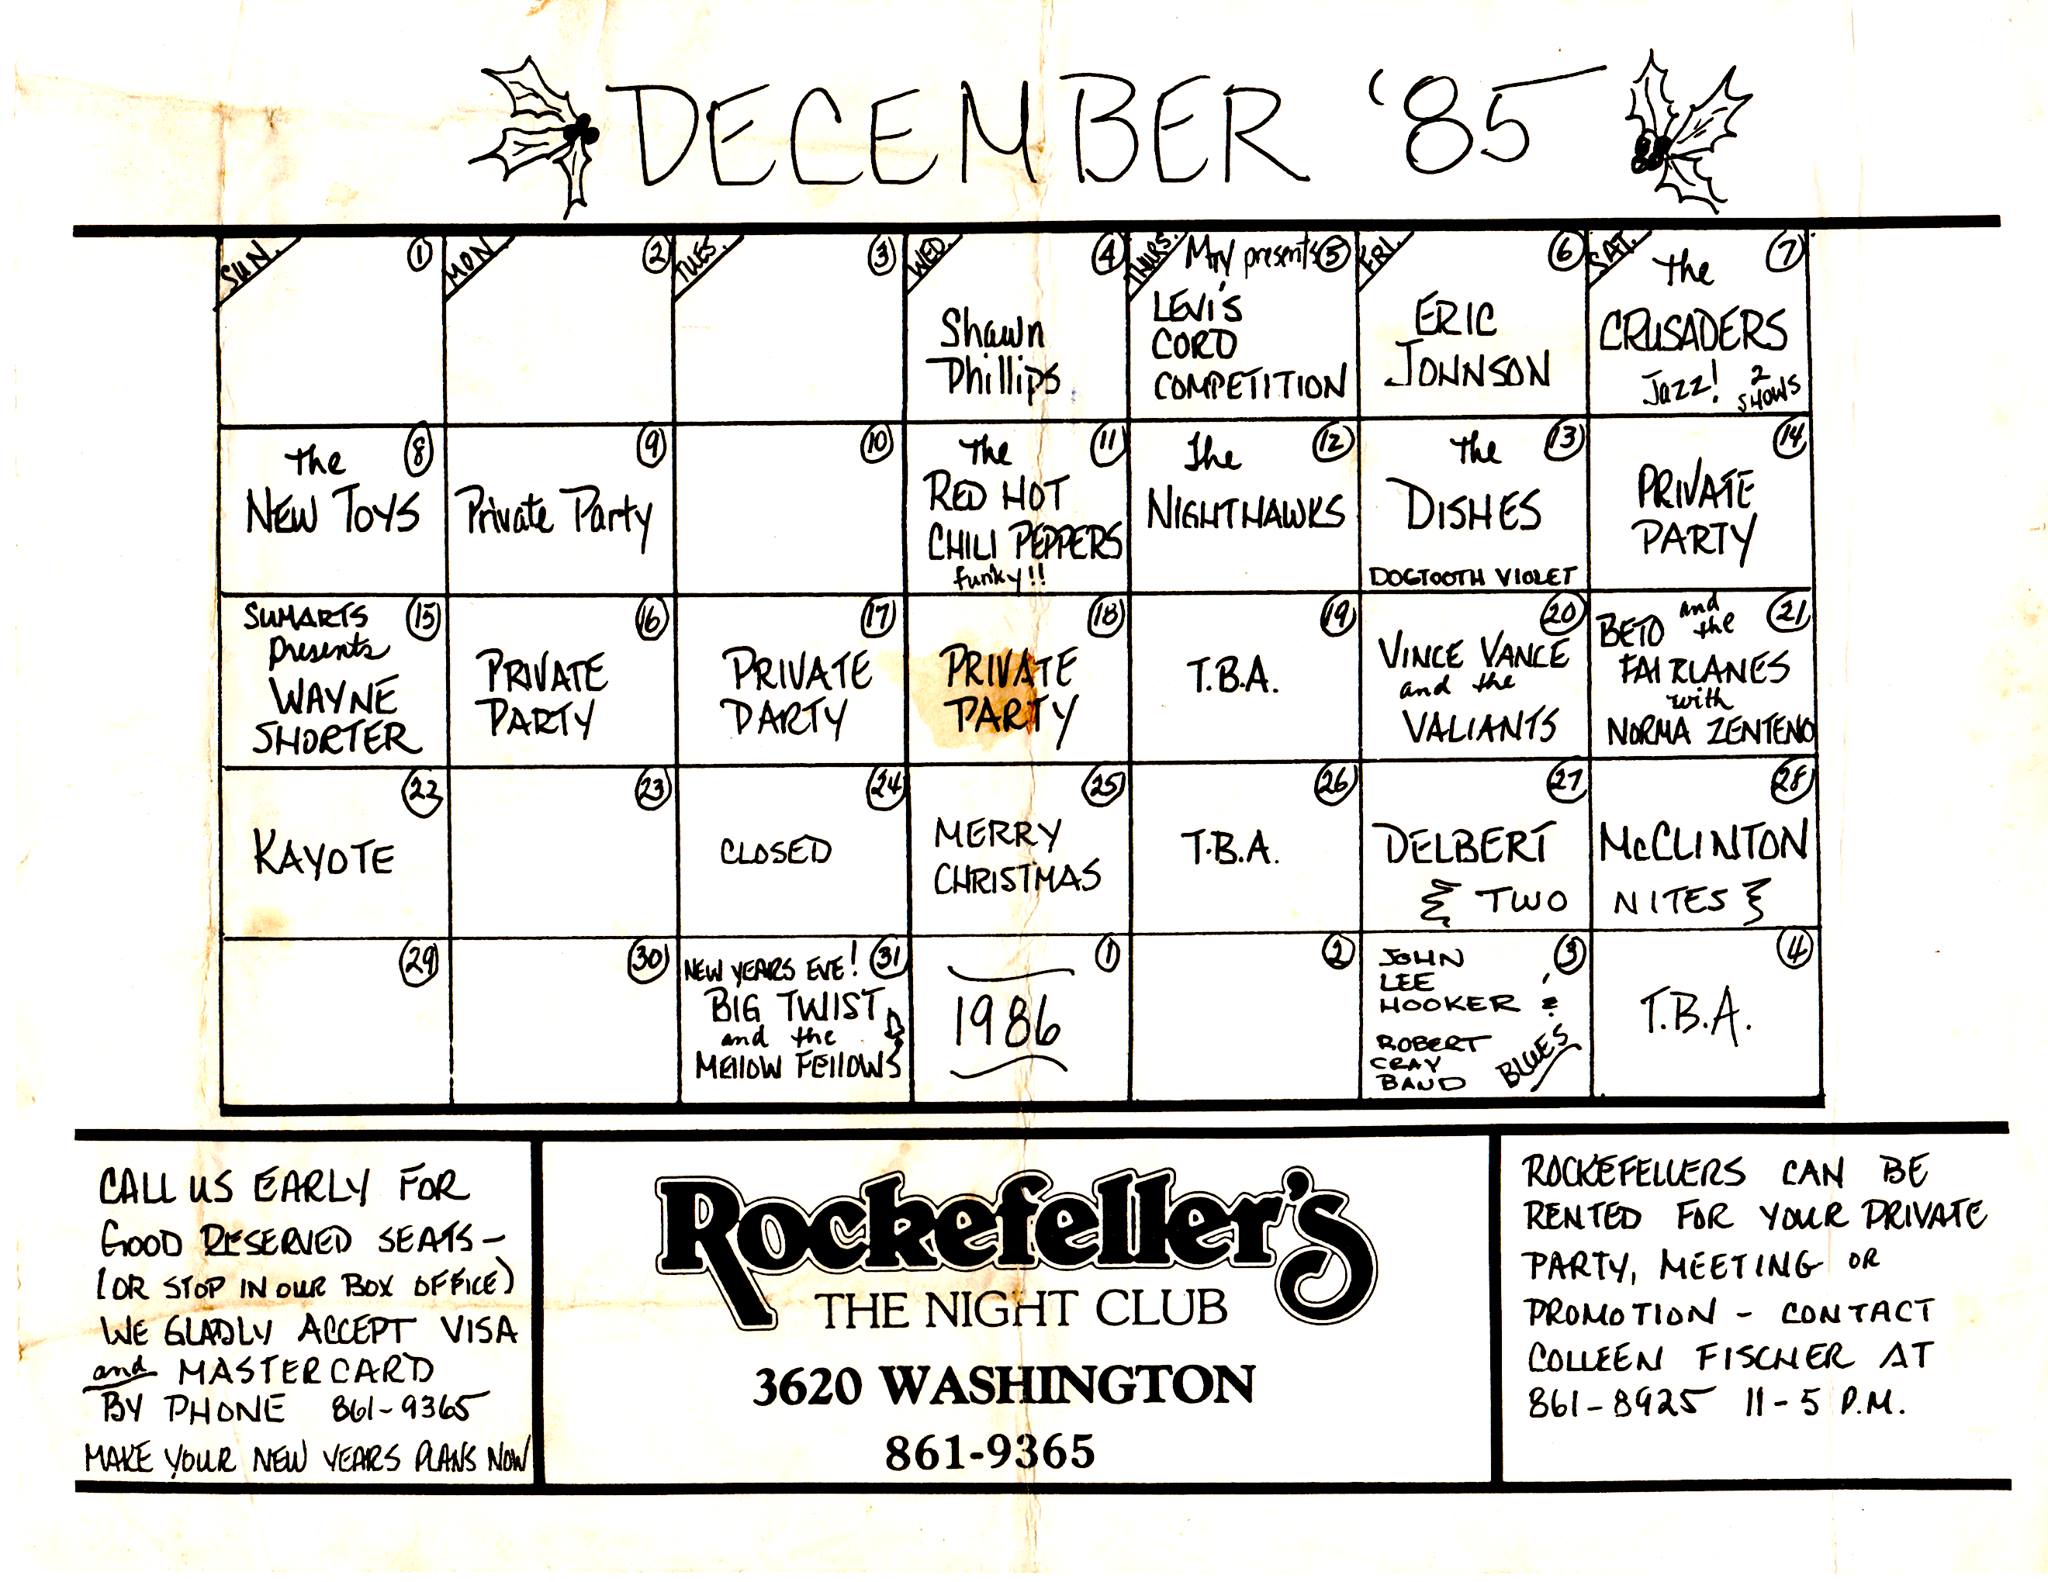 DECEMBER '85
SUN. 1
MON 2
TUES. 3
WED. 4
Shawn
Phillips
THURS. 5
Mtv presents
LEVI'S
CORD
COMPETITION
FRI. 6
ERIC
JOHNSON
SAT. 7
the
CRUSADERS
Jazz! 2
SHOWS
8
the
NEW TOYS
9
Private Party
10
11
The
RED HOT
CHILI PEPPERS
funky!!
12
The
NIGHTHAWKS
13
The
DISHES
DOGTOOTH VIOLET
14
PRIVATE
PARTY
15
SUMARTS
Presents
WAYNE
SHORTER
16
PRIVATE
PARTY
17
PRIVATE
PARTY
18
PRIVATE
PARTY
19
T.B.A.
20
VINCE VANCE
and the
VALIANTS
21
BETO and
the
FAIRLANES
with
NORMA ZENTENO
22
KAYOTE
23
24
CLOSED
25
MERRY
CHRISTMAS
26
T.B.A.
27
28
DELBERT McCLINTON
TWO NITES
29
30
31
NEW YEARS EVE!
BIG TWIST
and the
MELLOW FELLOWS
1
1986
2
3
JOHN
LEE
HOOKER &
ROBERT
CRAY
BAND
BLUES
4
T.B.A.
CALL US EARLY FOR
GOOD RESERVED SEATS –
(OR STOP IN OUR BOX OFFICE)
WE GLADLY ACCEPT VISA
and MASTERCARD
BY PHONE 861-9365
MAKE YOUR NEW YEARS PLANS NOW
Rockefeller's
THE NIGHT CLUB
3620 WASHINGTON
861-9365
ROCKEFELLERS CAN BE
RENTED FOR YOUR PRIVATE
PARTY, MEETING OR
PROMOTION – CONTACT
COLLEEN FISCHER AT
861-8925 11-5 P.M.